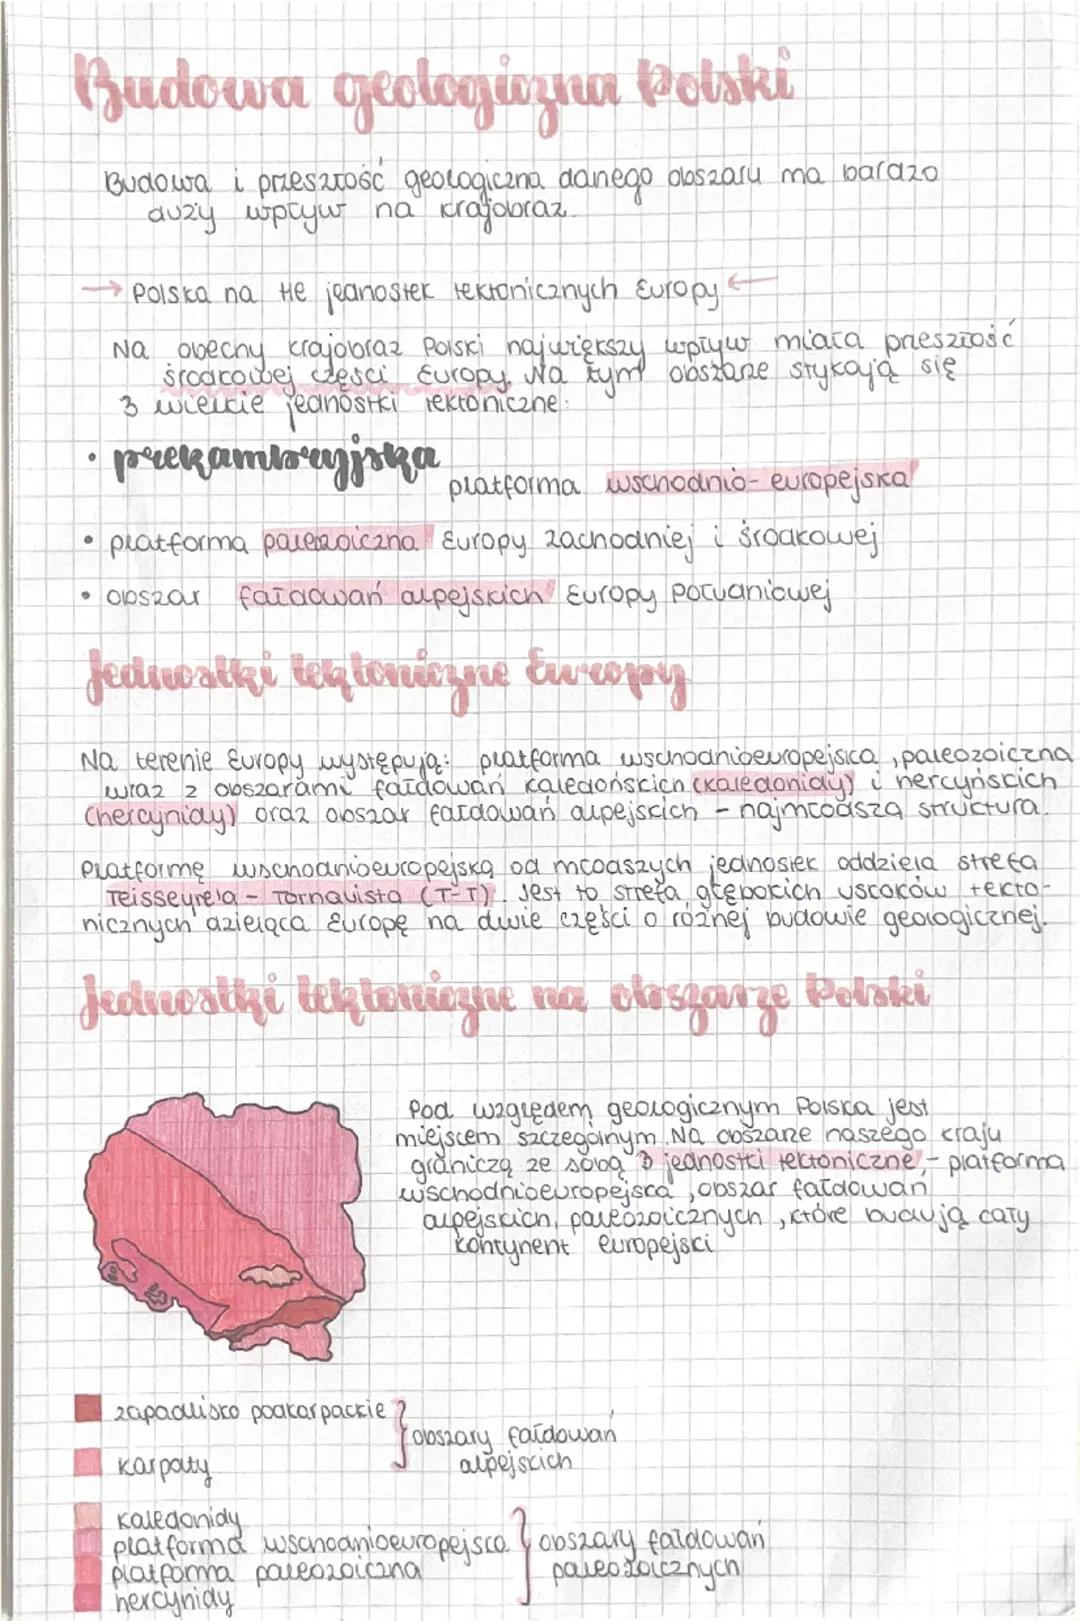 Budowa geologiczna Polski
Budowa i przeszłość geologiczna danego obszaru ma bardzo
duży wpływ na krajobraz.
→ Polska na tle jednostek tektonicznych Europy ←
Na obecny krajobraz Polski największy wpływ miała przeszłość
środkowej części Europy. Na tym obszarze stykają się
3 wielkie jednostki tektoniczne:
• prekambryjska
platforma wschodnio-europejska
• platforma paleozoiczna Europy zachodniej i środkowej
• obszar fałdowań alpejskich Europy Południowej
Jednostki tektoniczne Europy
Na terenie Europy występują: platforma wschodnioeuropejska, paleozoiczna
wraz z obszarami fałdowań kaledońskich (kaledonidy) i hercyńskich
(hercynidy) oraz obszar fałdowań alpejskich - najmłodszą struktura.
Platformę wschodnioeuropejską od młodszych jednostek oddziela strefa
Teisseyre'a - Tornquista (T-T). Jest to strefa głębokich uskoków tekto-
nicznych dzieląca Europę na dwie części o różnej budowie geologicznej.
Jednostki tektoniczne na obszarze Polski
Pod względem geologicznym Polska jest
miejscem szczególnym. Na obszarze naszego kraju
graniczą ze sobą 3 jednostki tektoniczne, - platforma
wschodnioeuropejska, obszar fałdowań
alpejskich, paleozoicznych, które budują cały
kontynent europejski
zapadlisko podkarpackie
obszary fałdowań
alpejskich
Karpaty
kaledonidy
platforma wschodnioeuropejska
obszary fałdowań
platforma paleozoiczna
paleozoicznych
hercynidy